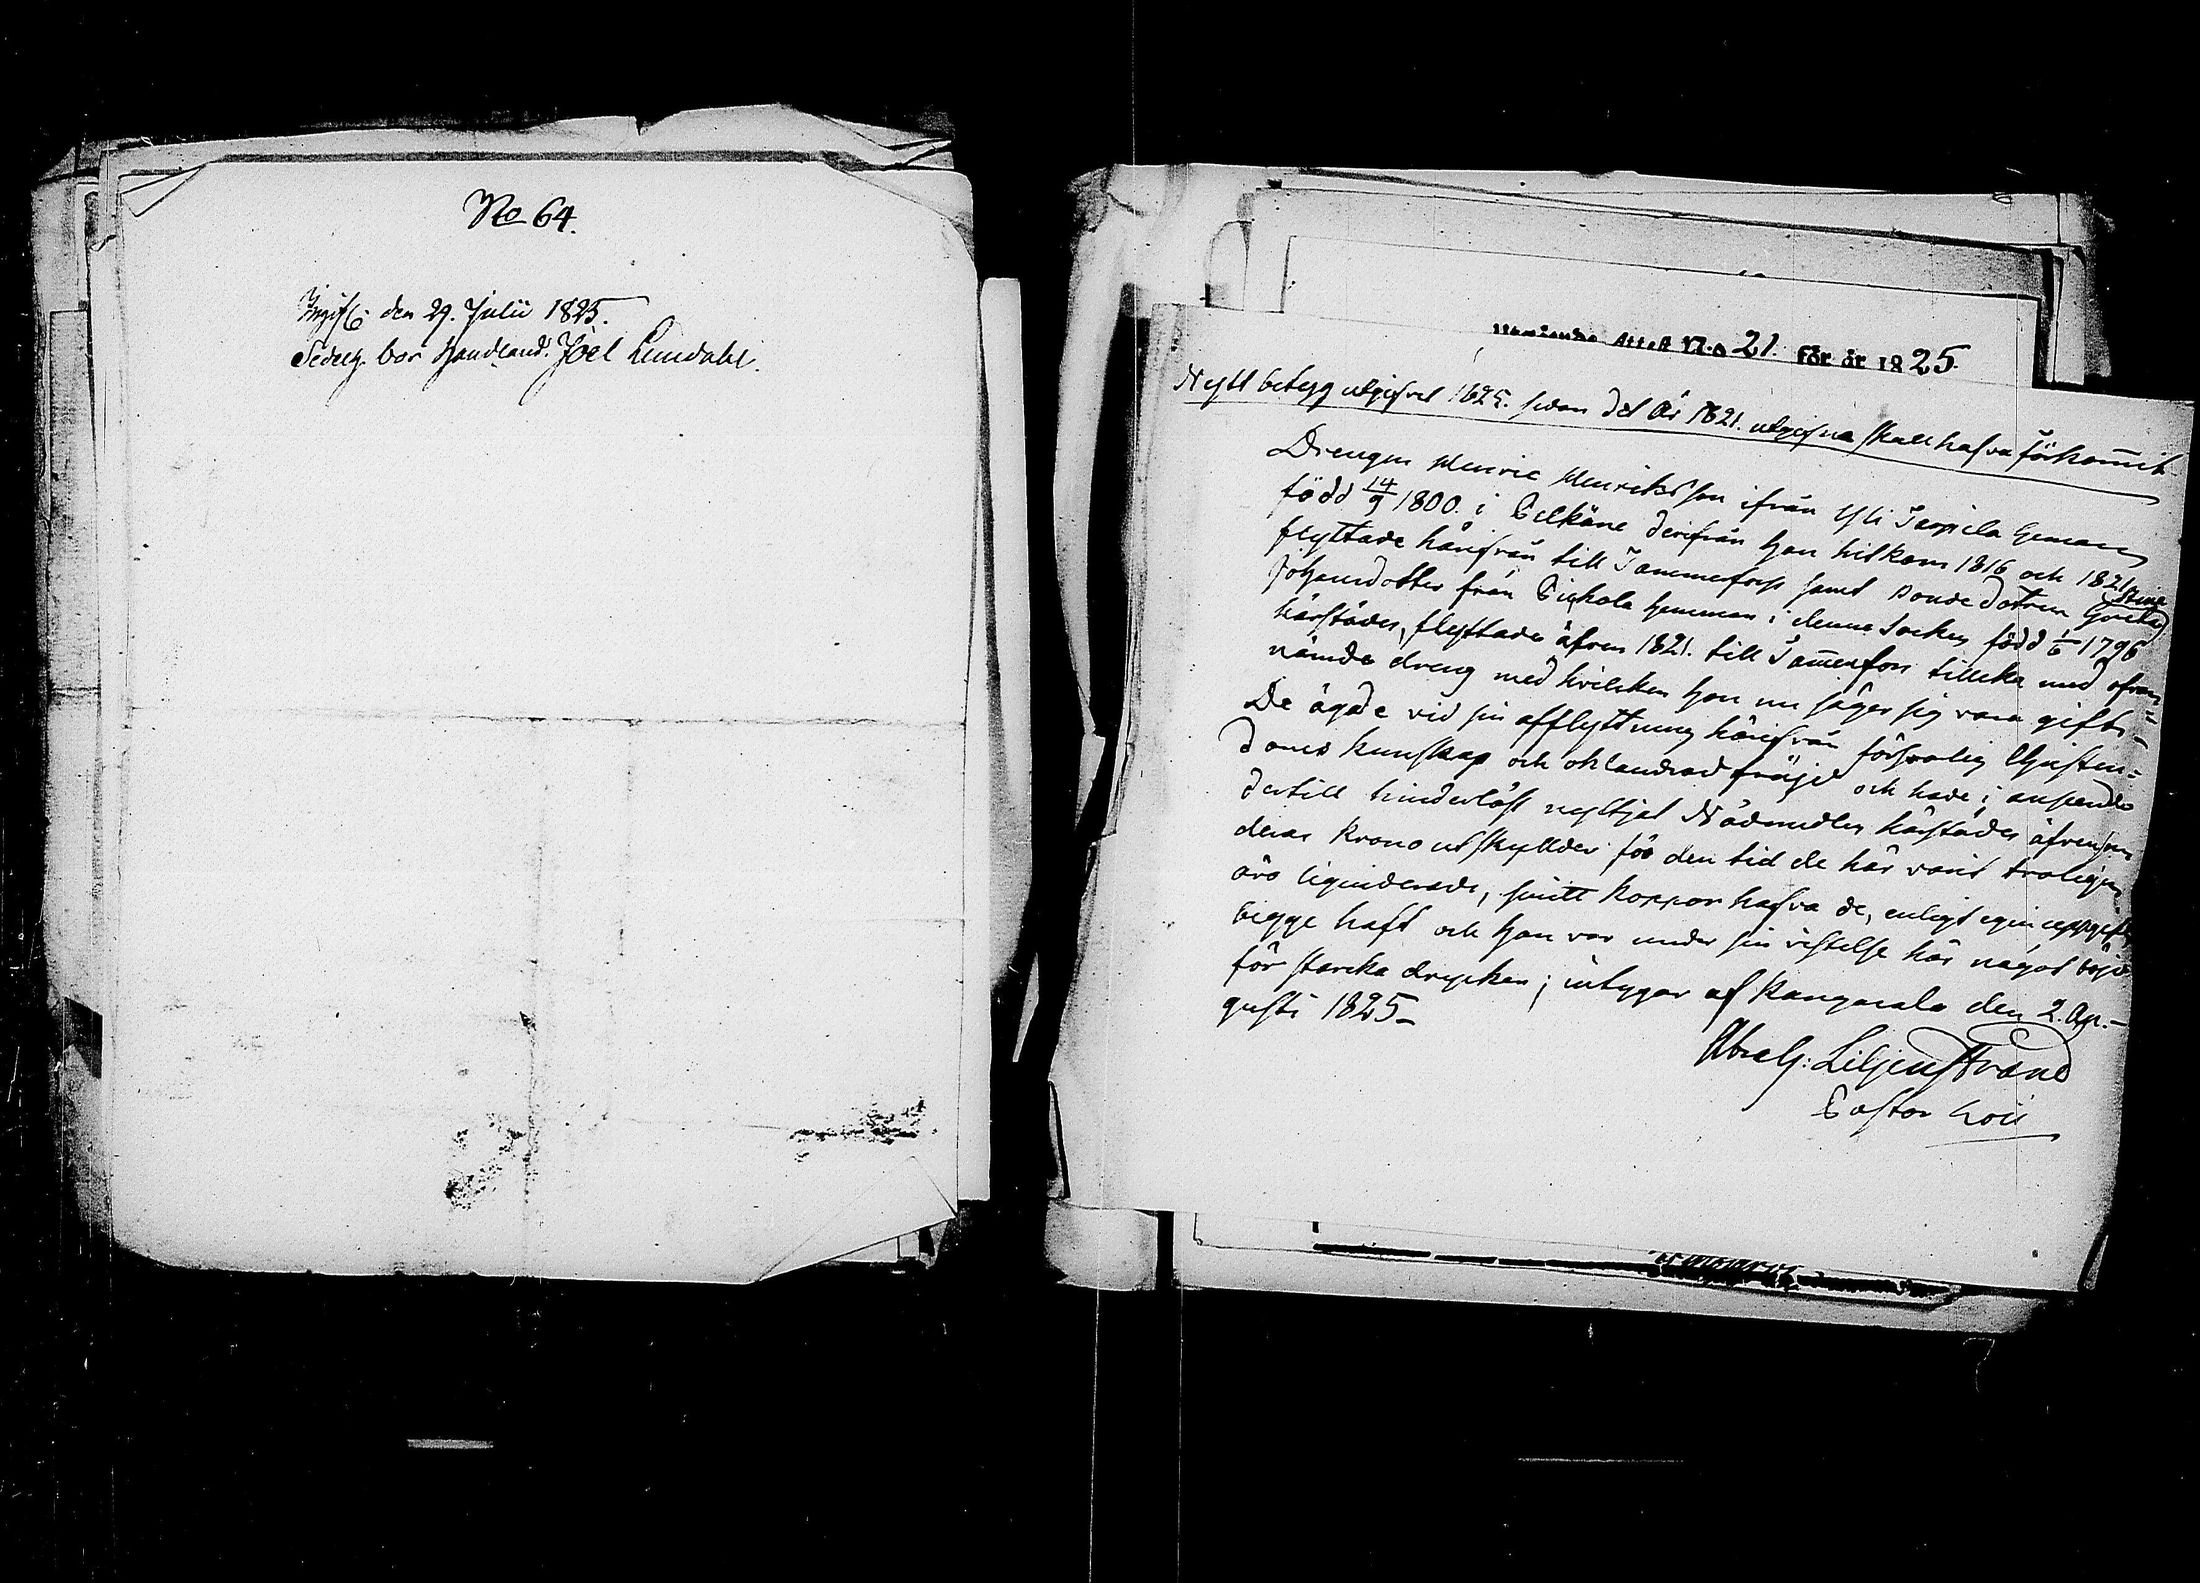 No 64.
Ingifs: den 29. Julii 1825.
Sedelg. bor Handland. Joel Lundahl.
Attest N:o 21. för år 1825.
Nytt betyg utgifvet 1825. sedan det År 1821. utgifna skall hafva förkommit
Drengen Henric Henriksson ifrån Yli Hemman
född 14/9 1800. i Pelkäne derifrån han hitkom 1816 och 1821
flyttade härifrån till Tammerfors samt Bonde dotren Greta Stina
Johansdotter från hemman i denna Socken född 1/6 1796
härstädes, flyttade äfven 1821. till Tammerfors tillika med ofvan=
nämde dreng med hvilcken hon nu säges sig vara gift.–
De ägde vid sin afflyttning härifrån försvarlig Christen=
doms kunskap och oklandrad fräjd och hade i anseende
dertill hinderlöst nyttjat Nådmedlen härstädes äfvensom
deras Krono utskyllder för den tid de här varit troligen
äro liqviderade, smitt koppor hafva de, enligt egen uppgift,
bägge haft och han var under sin vistelse här något böjd
för starcka drycker; intygar af Kangasala den 2. Au.–
gusti 1825–
Abrah: Liljenstrand
Pastor Loci